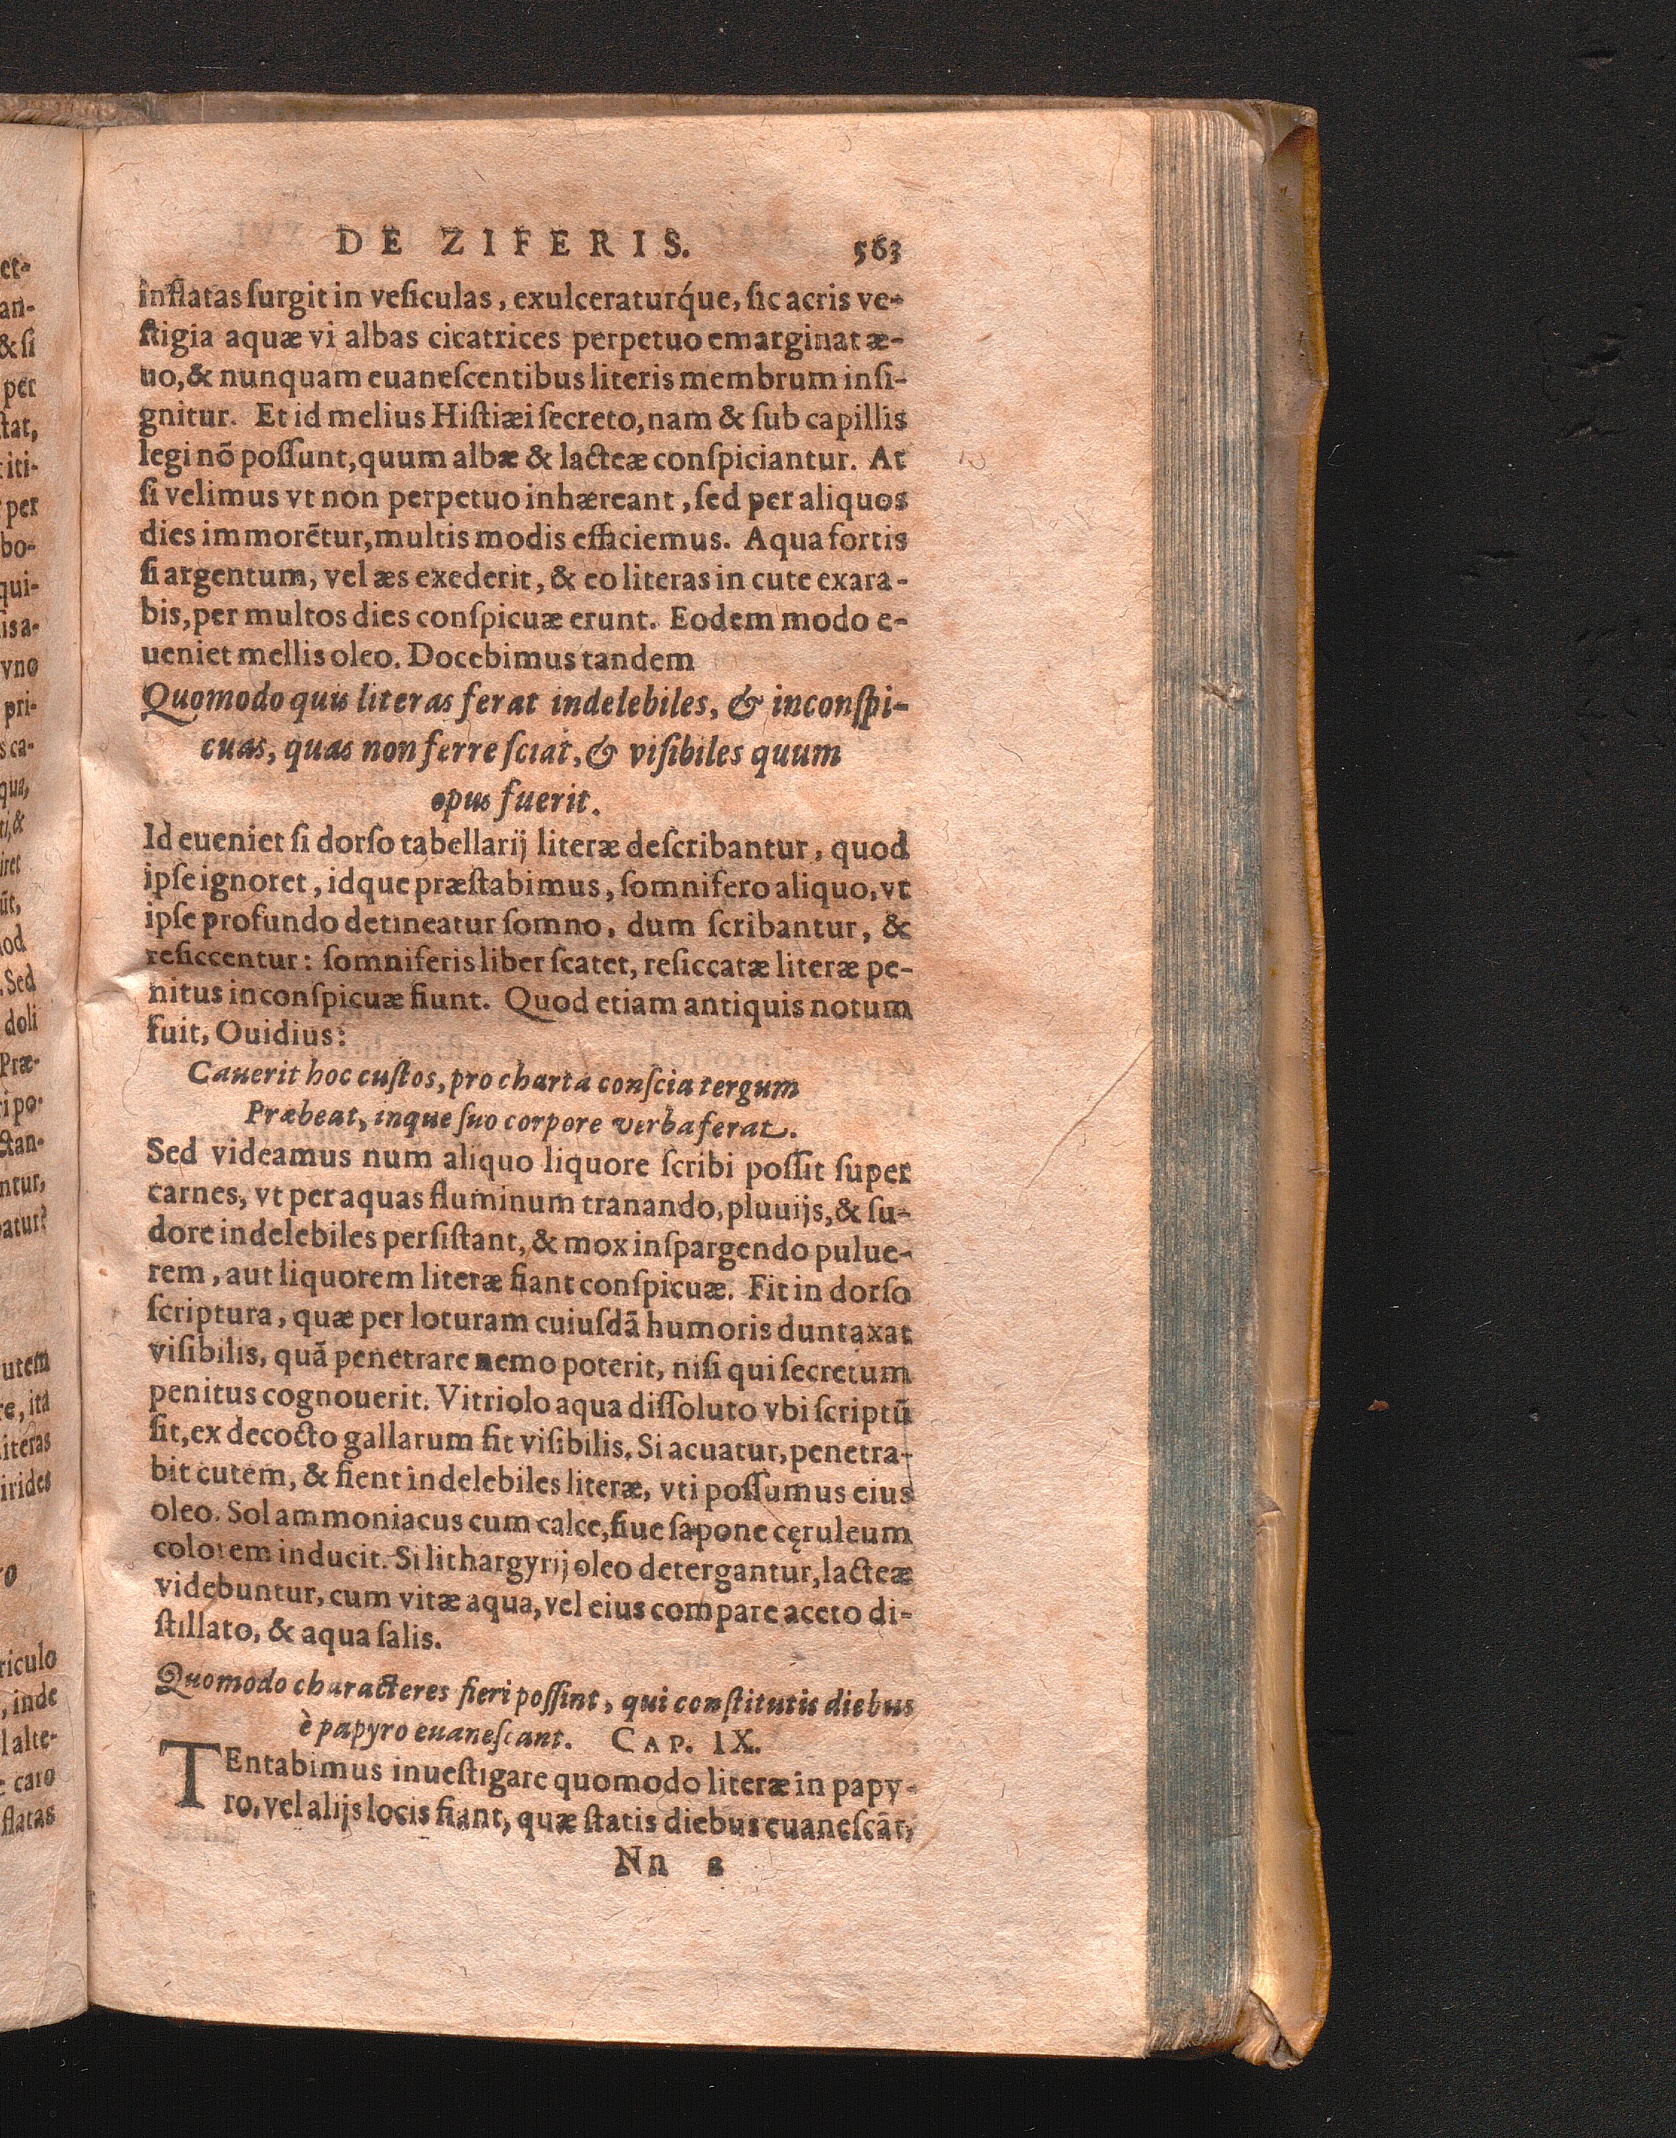 DE ZIFERIS. 563
inflatas ſurgit in veſiculas, exulceraturq́ue, ſic acris ve-
ſtigia aquæ vi albas cicatrices perpetuo emarginat æ-
uo, & nunquam euaneſcentibus literis membrum inſi-
gnitur. Et id melius Hiſtiæi ſecreto, nam & ſub capillis
legi nõ poſſunt, quum albæ & lacteæ conſpiciantur. At
ſi velimus vt non perpetuo inhæreant, ſed per aliquos
dies immorẽtur, multis modis efficiemus. Aqua fortis
ſi argentum, vel æs exederit, & eo literas in cute exara-
bis, per multos dies conſpicuæ erunt. Eodem modo e-
ueniet mellis oleo. Docebimus tandem
Quomodo quis literas ferat indelebiles, & inconſpi-
cuas, quas non ferre ſciat, & viſibiles quum
opus fuerit.
Id eueniet ſi dorſo tabellarij literæ deſcribantur, quod
ipſe ignoret, idque præſtabimus, ſomnifero aliquo, vt
ipſe profundo detineatur ſomno, dum ſcribantur, &
reſiccentur: ſomniferis liber ſcatet, reſiccatæ literæ pe-
nitus inconſpicuæ fiunt. Quod etiam antiquis notum
fuit, Ouidius:
Cauerit hoc cuſtos, pro charta conſcia tergum
Præbeat, inque ſuo corpore verba ferat.
Sed videamus num aliquo liquore ſcribi poſſit ſuper
carnes, vt per aquas fluminum tranando, pluuijs, & ſu-
dore indelebiles perſiſtant, & mox inſpargendo pulue-
rem, aut liquorem literæ fiant conſpicuæ. Fit in dorſo
ſcriptura, quæ per loturam cuiuſdã humoris duntaxat
viſibilis, quã penetrare nemo poterit, niſi qui ſecretum
penitus cognouerit. Vitriolo aqua diſſoluto vbi ſcriptũ
ſit, ex decocto gallarum fit viſibilis. Si acuatur, penetra-
bit cutem, & fient indelebiles literæ, vti poſſumus eius
oleo. Sol ammoniacus cum calce, ſiue ſapone cęruleum
colorem inducit. Si lithargyrij oleo detergantur, lacteæ
videbuntur, cum vitæ aqua, vel eius compare aceto di-
ſtillato, & aqua ſalis.
Quomodo characteres fieri poſſint, qui conſtitutis diebus
è papyro euaneſcant. CAP. IX.
TEntabimus inueſtigare quomodo literæ in papy-
ro, vel alijs locis fiant, quæ ſtatis diebus euaneſcãt,
Nn 2